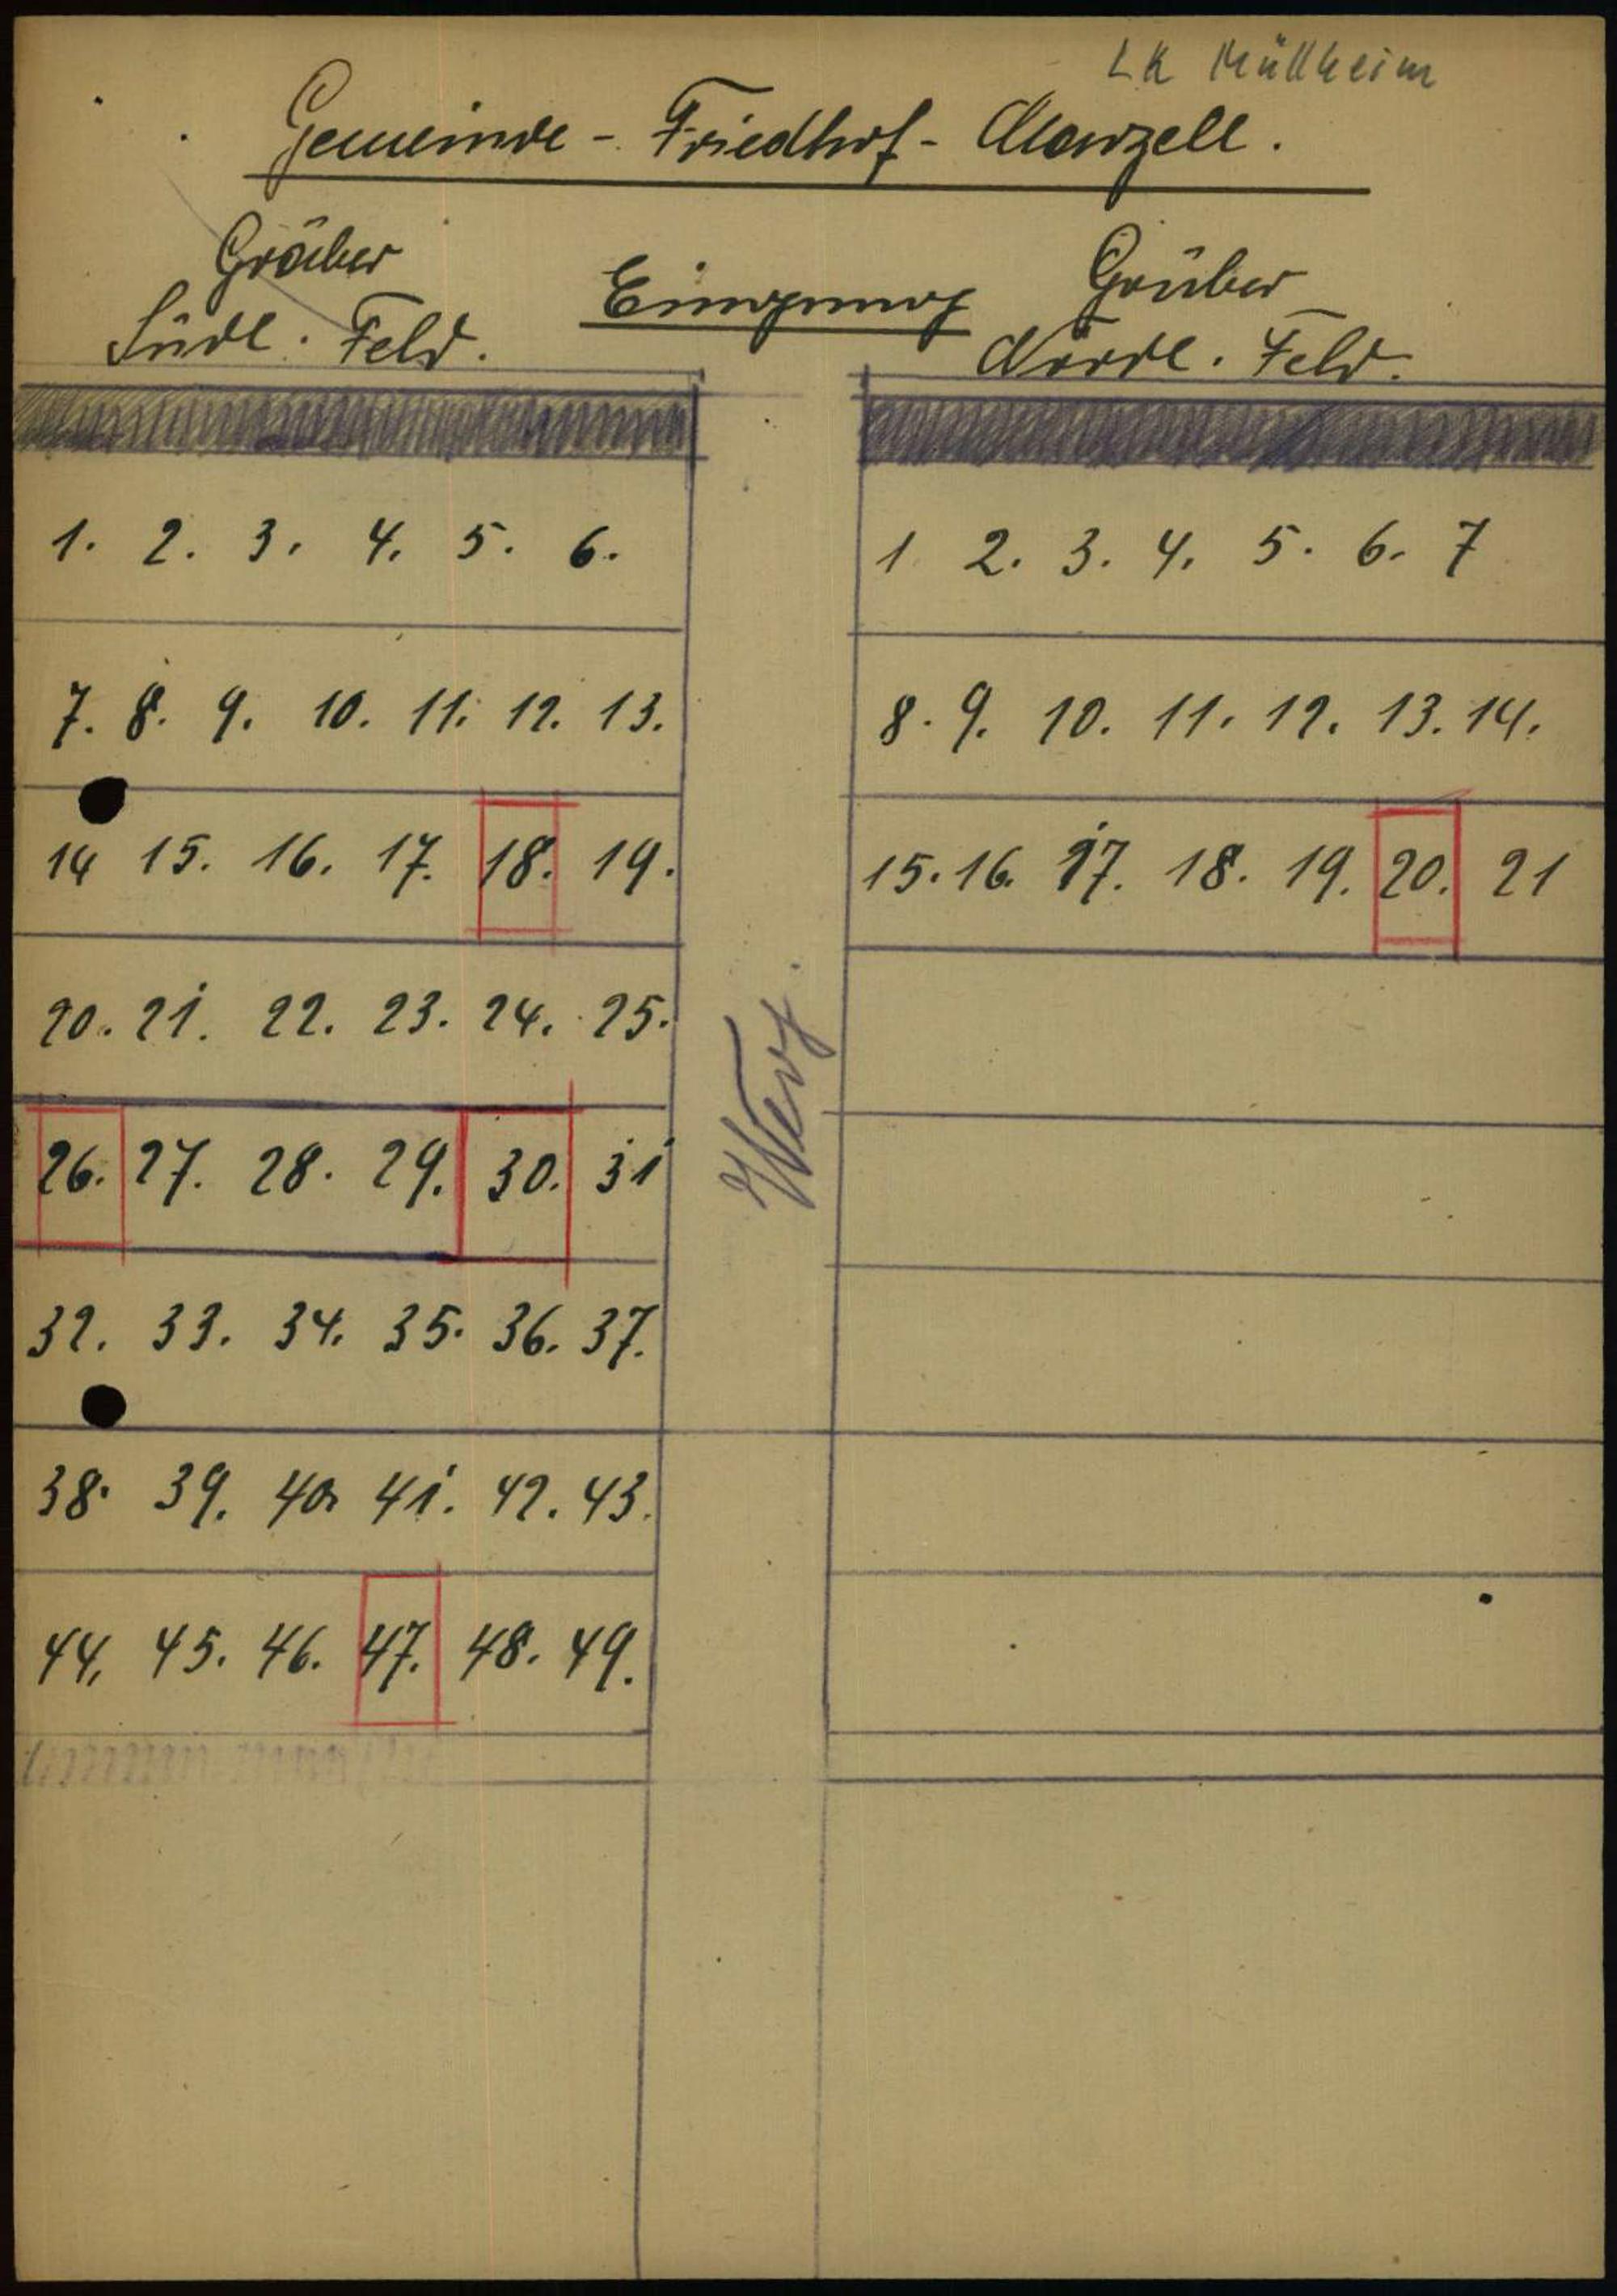 LK Müllheim
Gemeinde - Friedhof - Marzell.
Gräber
Südl. Feld.
Eingang
Gräber
Nördl. Feld.
1. 2. 3. 4. 5. 6.
7. 8. 9. 10. 11. 12. 13.
14 15. 16. 17. 18. 19.
20. 21. 22. 23. 24. 25.
26. 27. 28. 29. 30. 31
32. 33. 34. 35. 36. 37.
38. 39. 40. 41. 42. 43.
44. 45. 46. 47. 48. 49.
Weg.
1 2. 3. 4. 5. 6. 7
8. 9. 10. 11. 12. 13. 14.
15. 16. 17. 18. 19. 20. 21